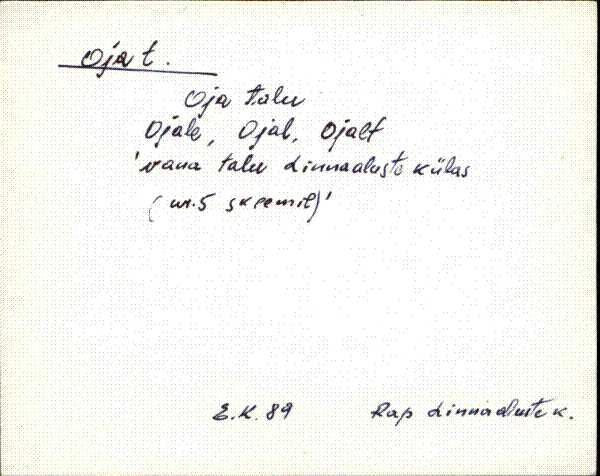 Oja t.
Oja talu
Ojale, Ojal, Ojalt
'vana talu Linnaaluste külas
(nr. 5 skeemil)'
E.K. 89 Rap Linnaaluste k.